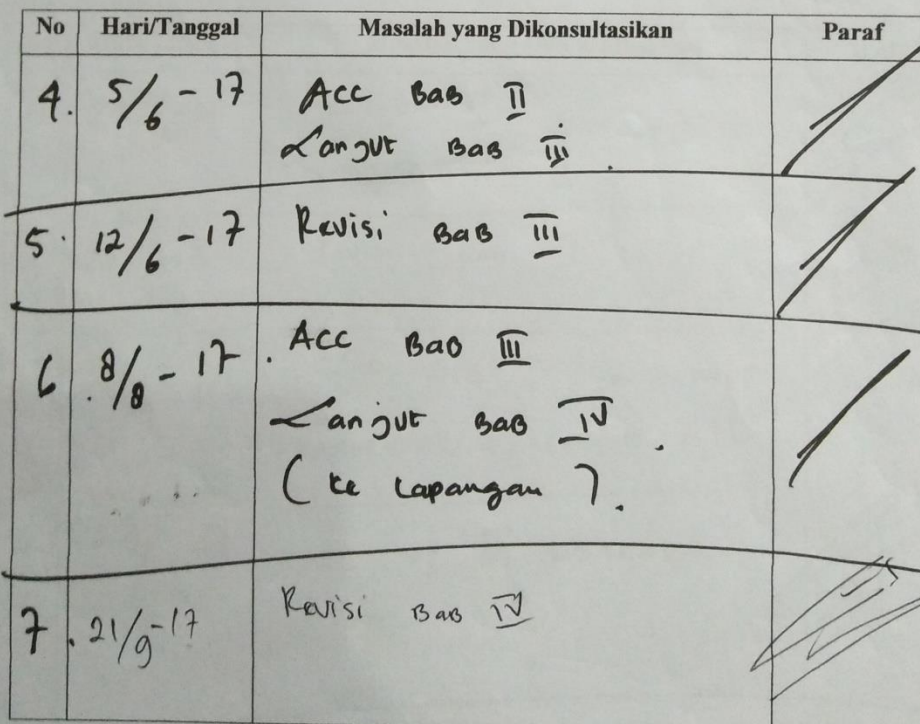 No Hari/Tanggal Masalah yang Dikonsultasikan Paraf
4. 5/6 - 17 Acc Bab II
Lanjut Bab III.
5. 12/6 - 17 Revisi Bab III
6 8/8 - 17. Acc Bab III
Lanjut Bab IV.
(ke lapangan).
7. 21/9-17 Revisi Bab IV